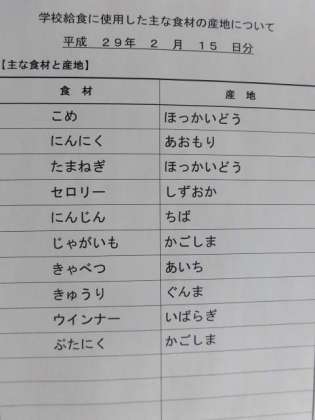 学校給食に使用した主な食材の産地について
平成 29年 2 月 15 日分
【主な食材と産地】
食 材 産 地
こめ ほっかいどう
にんにく あおもり
たまねぎ ほっかいどう
セロリー しずおか
にんじん ちば
じゃがいも かごしま
きゃべつ あいち
きゅうり ぐんま
ウインナー いばらぎ
ぶたにく かごしま